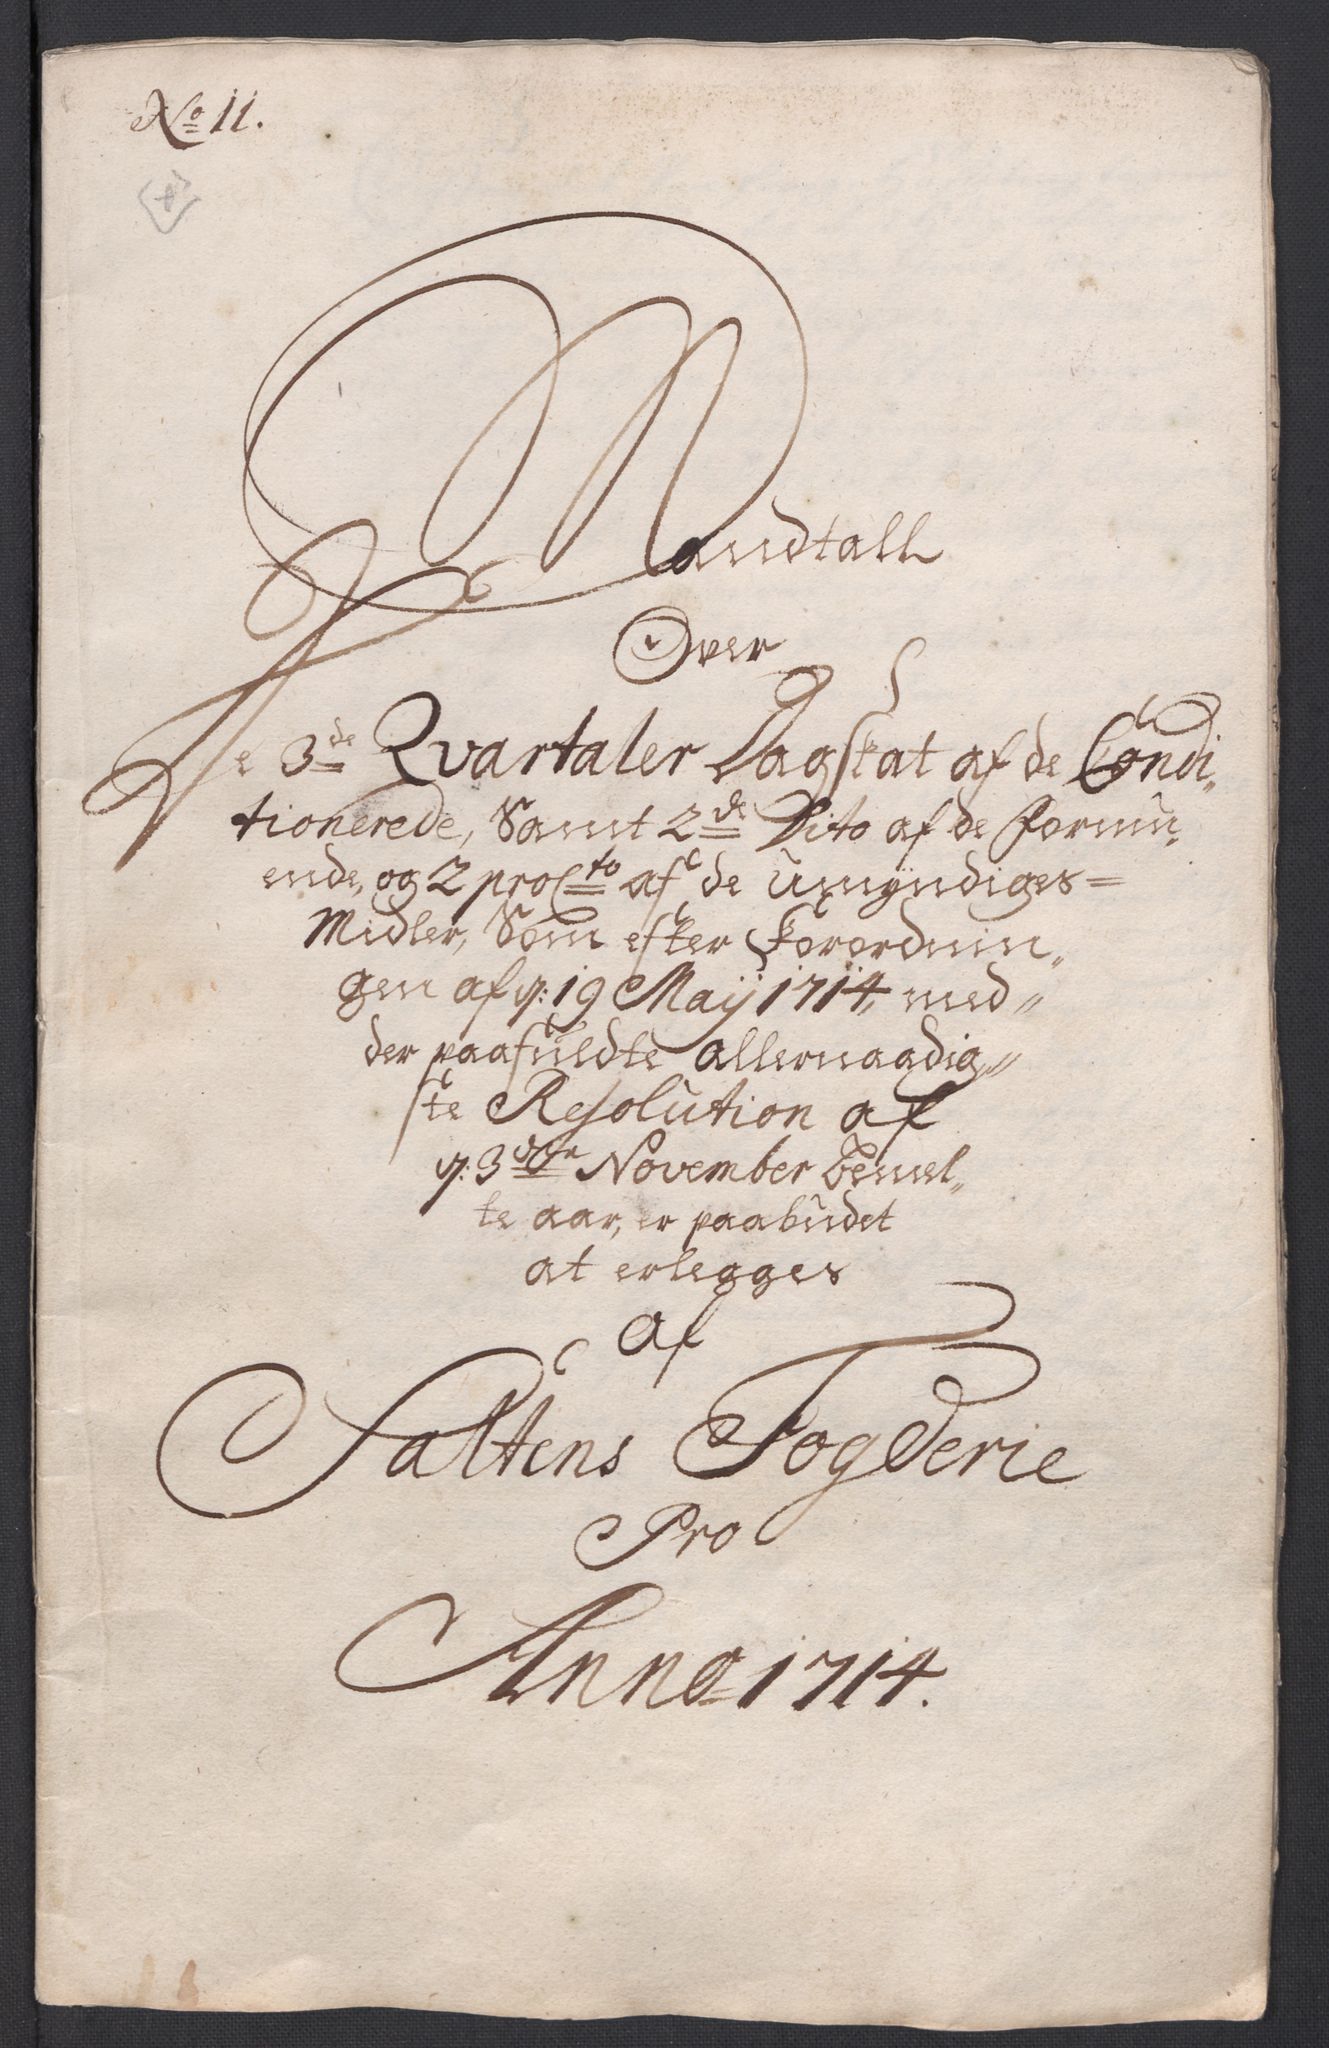 No 11.
Mandtall
Over
De 3de Qvartaler Dagskat af de Condi„
tionerede, Samt 2de Dito af de formu„
ende, og 2 proCto af de Umÿndiges=
Midler, Som efter Forordnin„
gen af d: 19 Maÿ 1714, med„
der paafuldte allernaadig„
ste Resolution af
d: 3die November bemel„
te aar, er paabudet
at erlegges
af
Saltens Fogderie
Pro
Anno 1714.